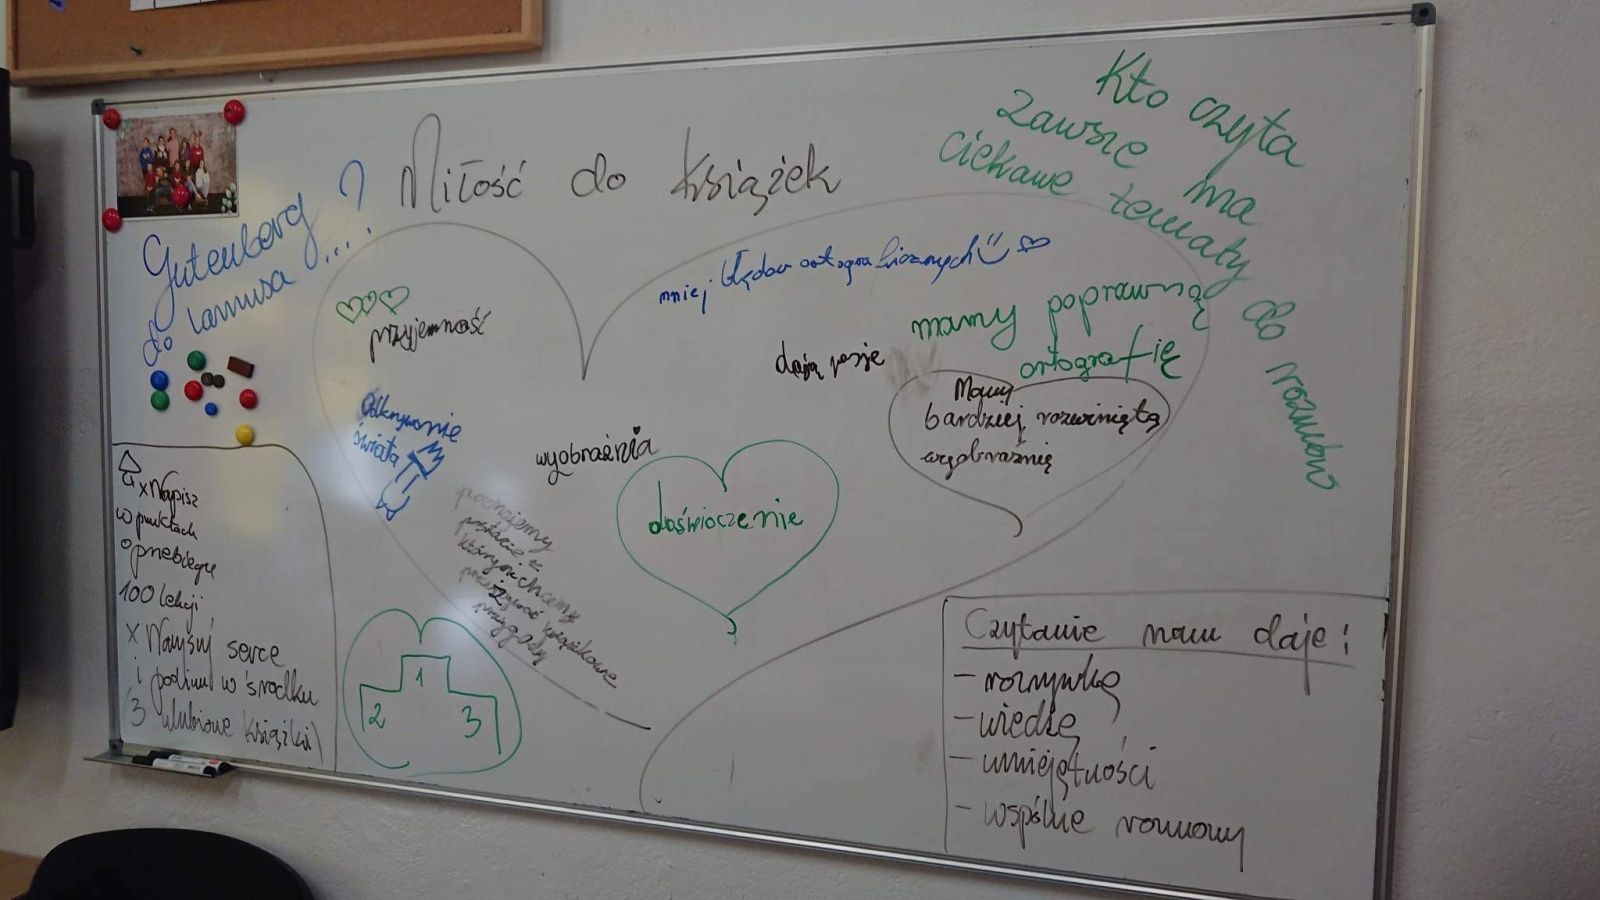 Miłość do książek
Kto czyta
zawsze ma
ciekawe tematy do rozmów
Gutenberg
do lamusa....?
mniej błędów ortograficznych
przyjemność
mamy poprawną
ortografię
dają pasje
Mamy
bardziej rozwiniętą
wyobraźnię
Odkrywanie
świata
wyobraźnia
doświoczenie
poznajemy
postacie z
którymi chcemy
przeżywać książkowe
przygody
x Napisz
w punktach
o przebiegu
100 lekcji
x Narysuj serce
i podium w środku
(3 ulubione książki)
1
2 3
Czytanie nam daje:
- rozrywkę
- wiedzę
- umiejętności
- wspólne rozmowy